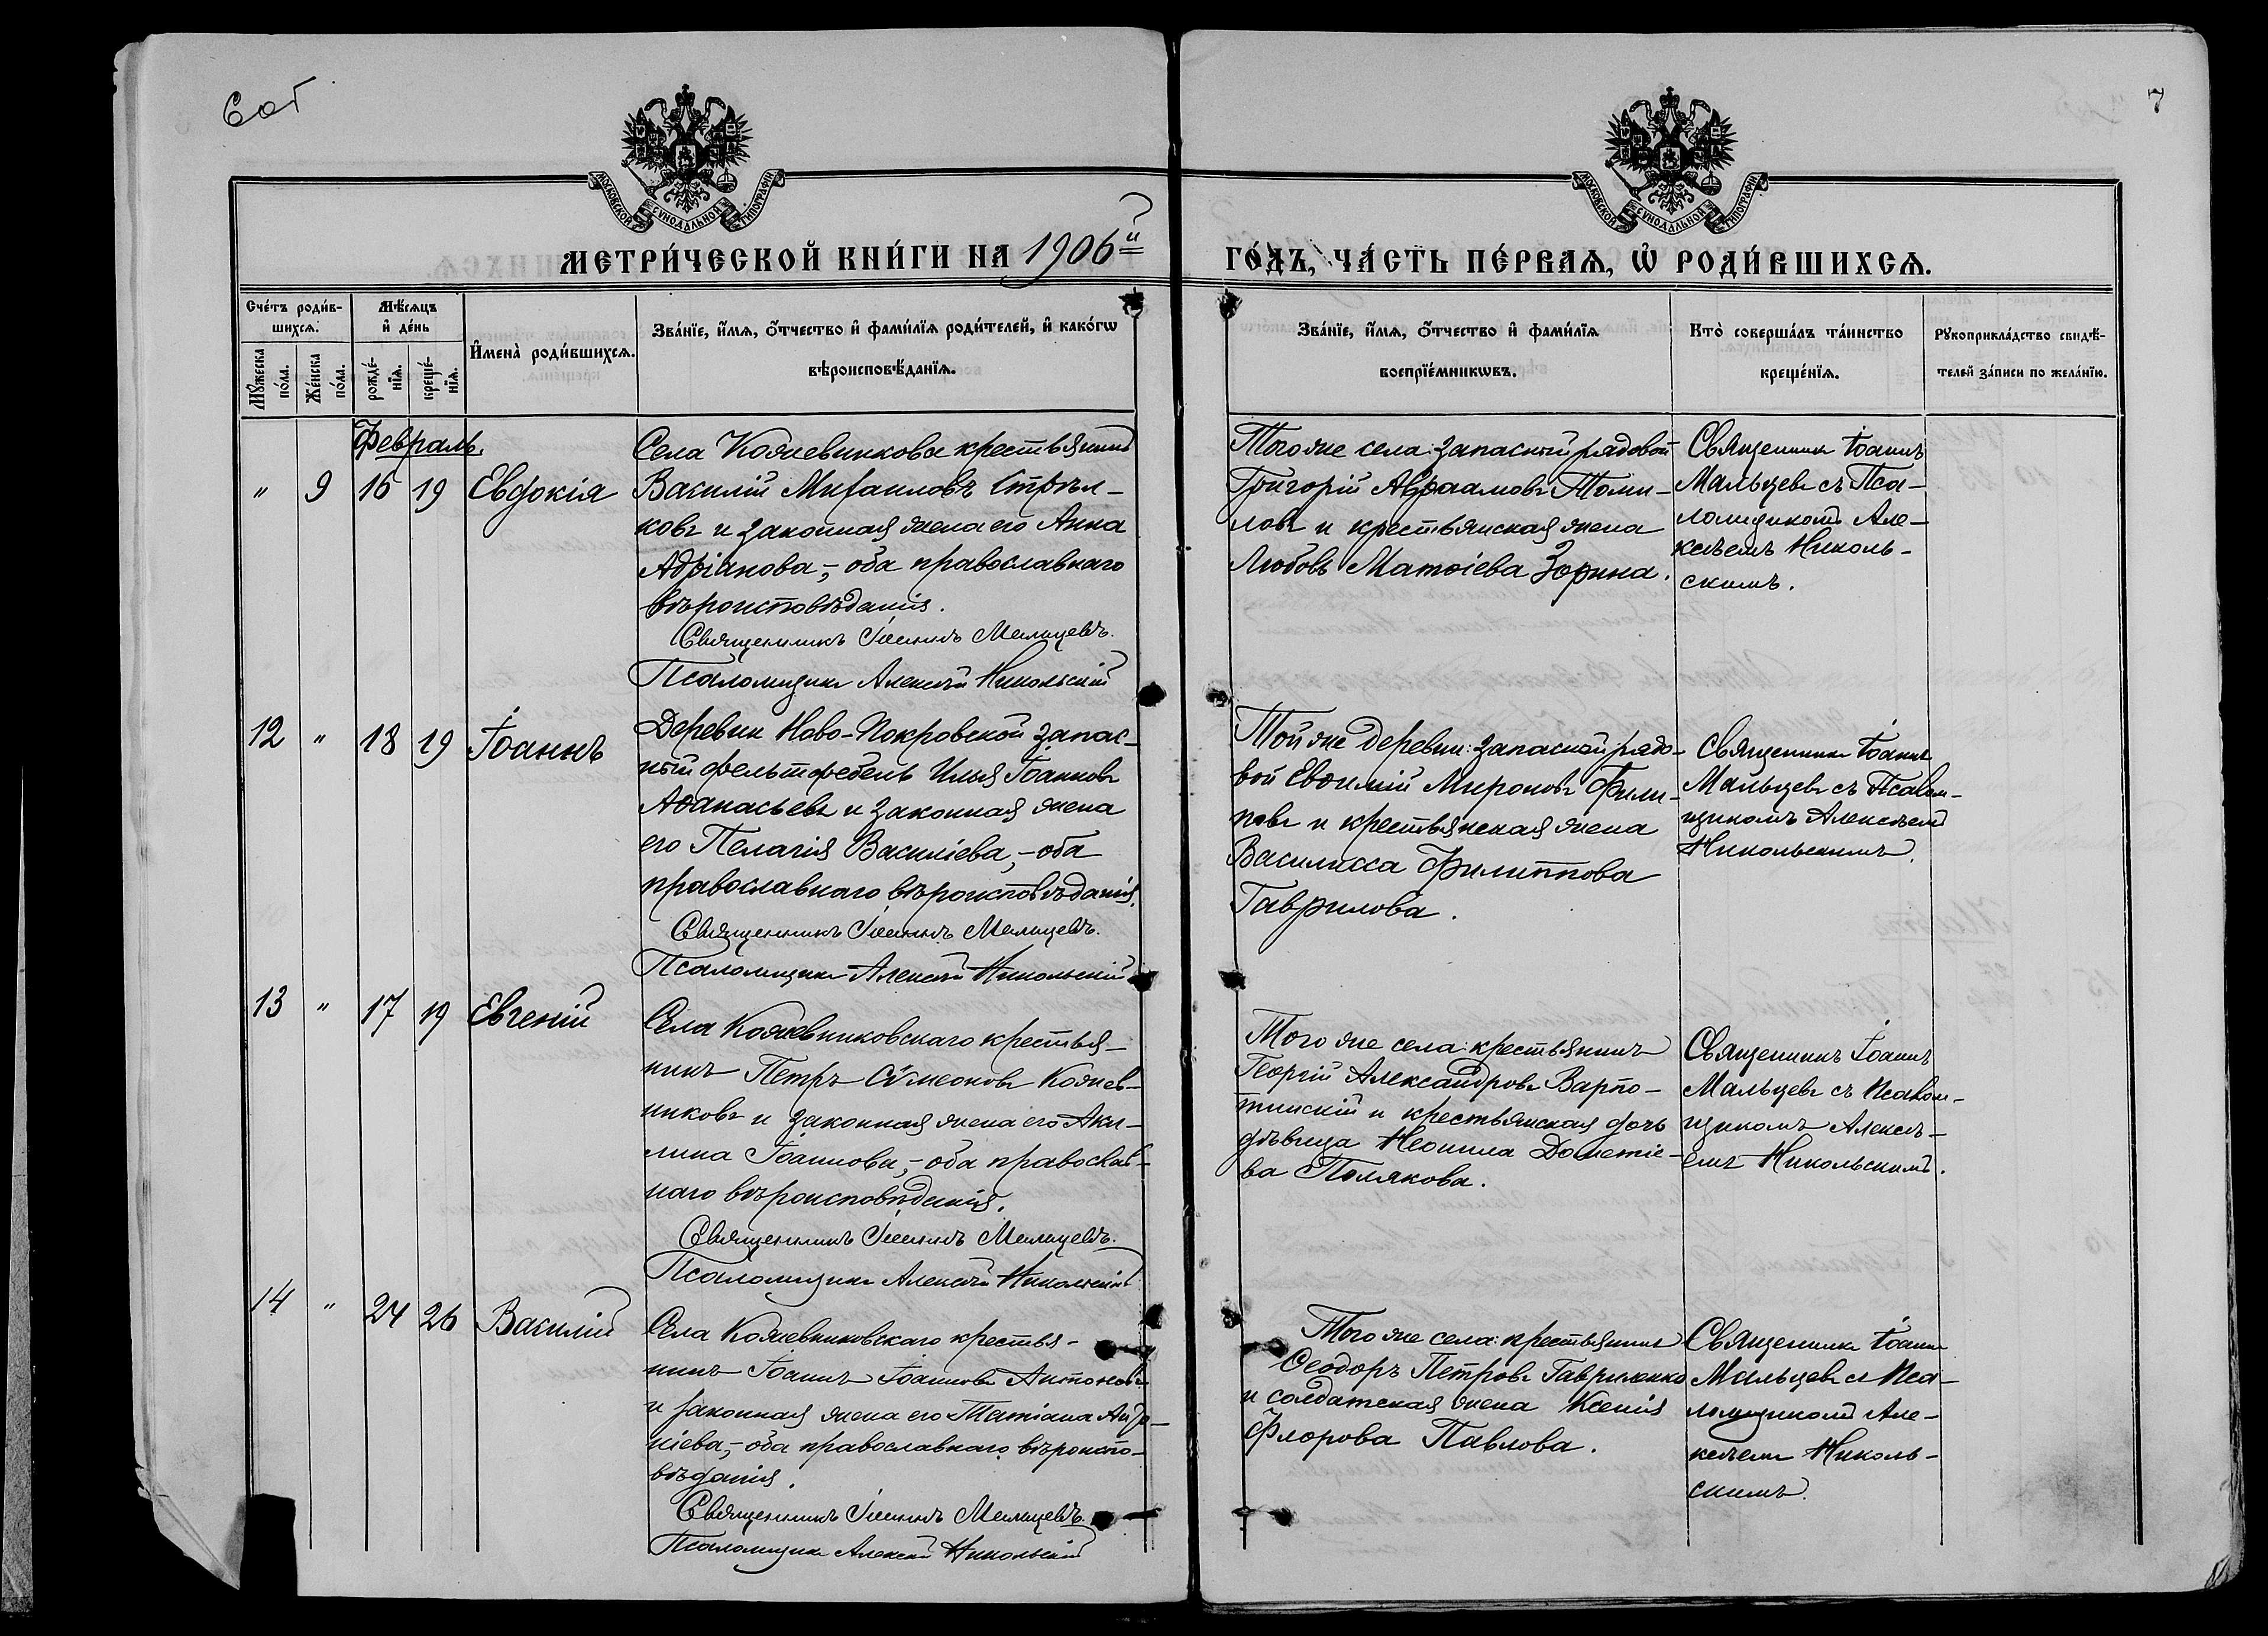 7
МОСКОВСКОЙ СѴНОДАЛЬНОЙ ТИПОГРАФІИ
МОСКОВСКОЙ СѴНОДАЛЬНОЙ ТИПОГРАФІИ
МЕТРИ́ЧЕСКОЙ КНИ́ГИ НА 1906й
ГО́ДЪ, ЧА́СТЬ ПЕ́РВАЯ, Ѡ РОДИ́ВШИХСЯ.
Сче́тъ роди́в-
шихся.
Мꙋ́жеска
по́ла.
Же́нска
по́ла.
Мѣ́сяцъ
и҆ де́нь
рожде́-
нїя.
креще́-
нїя.
И҆мена̀ роди́вшихся.
Зва́нїе, и҆́мя, ѻ҆́тчество и҆ фами́лїя роди́телей, и҆ како́гѡ
вѣроисповѣ́данїя.
Зва́нїе, и҆́мя, ѻ҆́тчество и҆ фами́лїя
воспрїе́мникѡвъ.
Кто̀ соверша́лъ та́инство
креще́нїя.
Рꙋкоприкла́дство свидѣ́-
телей за́писи по жела́нїю.
Февраль.
" 9 16 19 Евдокія
Села Кожевникова крестьянинъ
Василій Михаиловъ Стрѣл-
ковъ и законная жена его Анна
Адріанова,- оба православнаго
вѣроисповѣданія.
Священникъ Іоаннъ Мальцевъ.
Псаломщикъ Алексѣй Никольскій
Того же села: запасный рядовой
Григорій Авраамовъ Томи-
ловъ и крестьянская жена
Любовь Матѳіева Зорина.
Священникъ Іоаннъ
Мальцевъ съ Пса-
ломщикомъ Але-
ксѣемъ Николь-
скимъ.
12 " 18 19 Іоаннъ
Деревни Ново-Покровской запас-
ный фельдфебель Илья Іоанновъ
Аѳанасьевъ и законная жена
его Пелагія Василіева,- оба
православнаго вѣроисповѣданія.
Священникъ Іоаннъ Мальцевъ.
Псаломщикъ Алексѣй Никольскій
Той же деревни: запасный рядо-
вой Евѳимій Мироновъ Фили-
повъ и крестьянская жена
Василисса Филиппова
Гаврилова.
Священникъ Іоаннъ
Мальцевъ съ Псалом-
щикомъ Алексѣемъ
Никольскимъ.
13 " 17 19 Евгеній
Села Кожевниковскаго крестья-
нинъ Петръ Сѵмеоновъ Кожев-
никовъ и законная жена его Аки-
лина Іоаннова,- оба православ-
наго вѣроисповѣданія.
Священникъ Іоаннъ Мальцевъ.
Псаломщикъ Алексѣй Никольскій
Того же села: крестьянинъ
Георгій Александровъ Варпо-
тинскій и крестьянская дочь
дѣвица Неонила Дометіе-
ва Полякова.
Священникъ Іоаннъ
Мальцевъ съ Псалом-
щикомъ Алексѣ-
емъ Никольскимъ.
14 " 24 26 Василій
Села Кожевниковскаго крестья-
нинъ Іоаннъ Іоанновъ Антоновъ
и законная жена его Татіана Андро-
ніева,- оба православнаго вѣроиспо-
вѣданія.
Священникъ Іоаннъ Мальцевъ.
Псаломщикъ Алексѣй Никольскій
Того же села: крестьянинъ
Ѳеодоръ Петровъ Гавриленко
и солдатская жена Ксенія
Флорова Павлова.
Священникъ Іоаннъ
Мальцевъ съ Пса-
ломщикомъ Але-
ксѣемъ Николь-
скимъ.